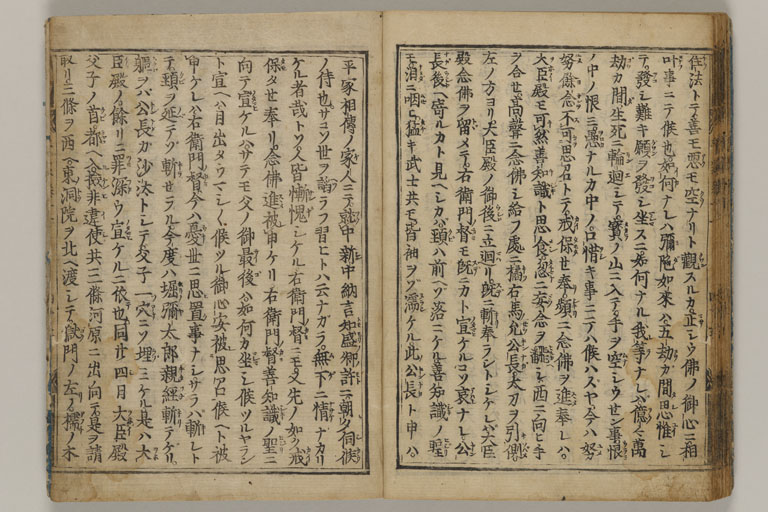 作法トテ善モ悪モ空ナリト觀スルカ正シウ佛ノ御心ニ相
叶事ニテ候也如何ナレハ彌陀如來ハ五劫カ間思惟シ
テ發シ難キ願ヲ發シ坐スニ如何ナル我等ナレハ億々萬
劫カ間生死ニ輪廻シテ寶ノ山ニ入テ手ヲ空シウセン事恨
ノ中ノ恨ミ愚ナルカ中ノ口惜キ事ニテハ候ハズヤ今ハ努
努餘念不可思召トテ戒保セ奉頻ニ念佛ヲ進奉レハ
大臣殿モ可然善知識ト思食忽ニ妄念ヲ離シ西ニ向ヒ手
ヲ合セ高聲ニ念佛シ給フ處ニ橘右馬允公長太刀ヲ引側
左ノ方ヨリ大臣殿ノ御後ニ立廻リ既斬奉ラントシケレハ大臣
殿念佛ヲ留メテ右衛門督モ既ニカト宣ケルコソ哀ナレ公
長後ヘ寄ルカト見ヘシカハ頸ハ前ヘソ落ニケル善知識ノ聖
モ泪ニ咽ヒ猛キ武士共モ皆袖ヲゾ濡ケル此公長ト申ハ
平家相傳ノ家人ニテ就中新中納言知盛卿許ニ朝夕伺候
ノ侍也サコソ世ヲ諂ラフ習ヒトハ云ナガラ無下ニ情ナカリ
ケル者哉トソ人皆慚愧シケル右衛門督ニモ父先ノ如ク戒
保タセ奉リ念佛進被申ケリ右衛門督善知識ノ聖ニ
向テ宣ケルハサテモ父ノ御最後ハ如何カ坐シ候ツルヤラン
ト宣ヘハ目出タウマシ〳〵候ツル御心安被思召候ヘト被
申ケレハ右衛門督今ハ憂世ニ思置事ナシサラハ斬レト
テ頸ヲ延テゾ斬セラル今度ハ堀彌太郎親經斬テケリ
軀ヲバ公長カ沙汰トシテ父子一穴ニゾ埋ミケル是ハ大
臣殿ノ餘リニ罪深ウ宣ケルニ依也同廿四日大臣殿
父子ノ首都ヘ入檢非違使共三條河原ニ出向テ是ヲ請
取リ三條ヲ西ヘ東洞院ヲ北ヘ渡シテ獄門ノ左ノ樗ノ木